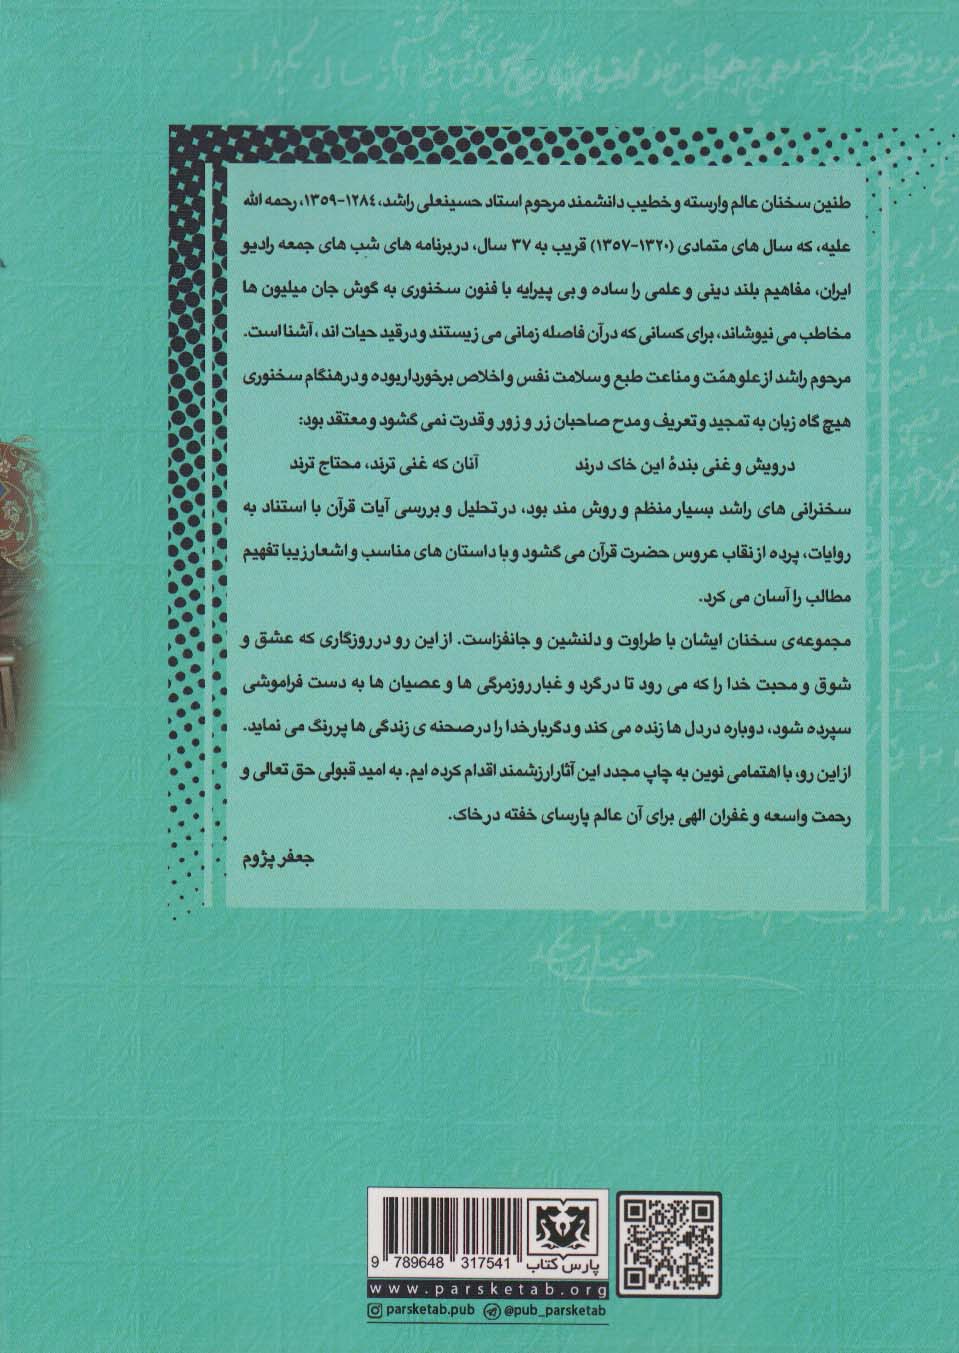 طنین سخنان عالم وارسته و خطیب دانشمند مرحوم استاد حسینعلی راشد، ۱۲۸۴-۱۳۵۹، رحمه الله
علیه، که سال های متمادی (۱۳۲۰-۱۳۵۷) قریب به ۳۷ سال، در برنامه های شب های جمعه رادیو
ایران، مفاهیم بلند دینی و علمی را ساده و بی پیرایه با فنون سخنوری به گوش جان میلیون ها
مخاطب می نیوشاند، برای کسانی که در آن فاصله زمانی می زیستند و در قید حیات اند، آشنا است.
مرحوم راشد از علو همّت و مناعت طبع و سلامت نفس و اخلاص برخوردار بوده و در هنگام سخنوری
هیچ گاه زبان به تمجید و تعریف و مدح صاحبان زر و زور و قدرت نمی گشود و معتقد بود:
درویش و غنی بندهٔ این خاک درند آنان که غنی ترند، محتاج ترند
سخنرانی های راشد بسیار منظم و روش مند بود، در تحلیل و بررسی آیات قرآن با استناد به
روایات، پرده از نقاب عروس حضرت قرآن می گشود و با داستان های مناسب و اشعار زیبا تفهیم
مطالب را آسان می کرد.
مجموعه‌ی سخنان ایشان با طراوت و دلنشین و جانفزاست. از این رو در روزگاری که عشق و
شوق و محبت خدا را که می رود تا در گرد و غبار روزمرگی ها و عصیان ها به دست فراموشی
سپرده شود، دوباره در دل ها زنده می کند و دگربار خدا را در صحنه ی زندگی ها پررنگ می نماید.
از این رو، با اهتمامی نوین به چاپ مجدد این آثار ارزشمند اقدام کرده ایم. به امید قبولی حق تعالی و
رحمت واسعه و غفران الهی برای آن عالم پارسای خفته در خاک.
جعفر پژوم
پارس کتاب
9 789648 317541
www.parsketab.org
parsketab.pub @pub_parsketab